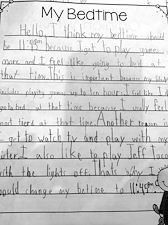 My Bedtime
Hello, I think my bedtime should
be 11:00pm because I get to play games
more and I feel like going to bed at
that time. This is important because my
includes playing games up to ten hours. I
go to bed at that time because I really
most tired at that time. Another reason is
I get to watch tv and play with my
sister. I also like to play Jeff
with the lights off. thats why I
should change my betime to 11: